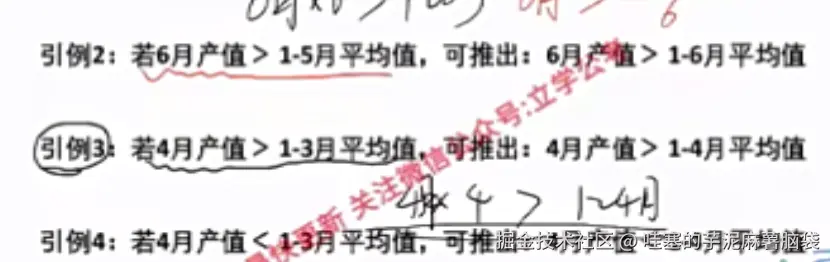 引例2：若6月产值> 1-5月平均值，可推出：6月产值> 1-6月平均值
引例3：若4月产值> 1-3月平均值，可推出：4月产值> 1-4月平均值
4月×4 > 1~4月
引例4：若4月产值< 1-3月平均值，可推出：4月产值< 1-4月平均值
更新 关注微信公众号:立学公考
掘金技术社区 @ 哇塞的芋泥麻薯脑袋